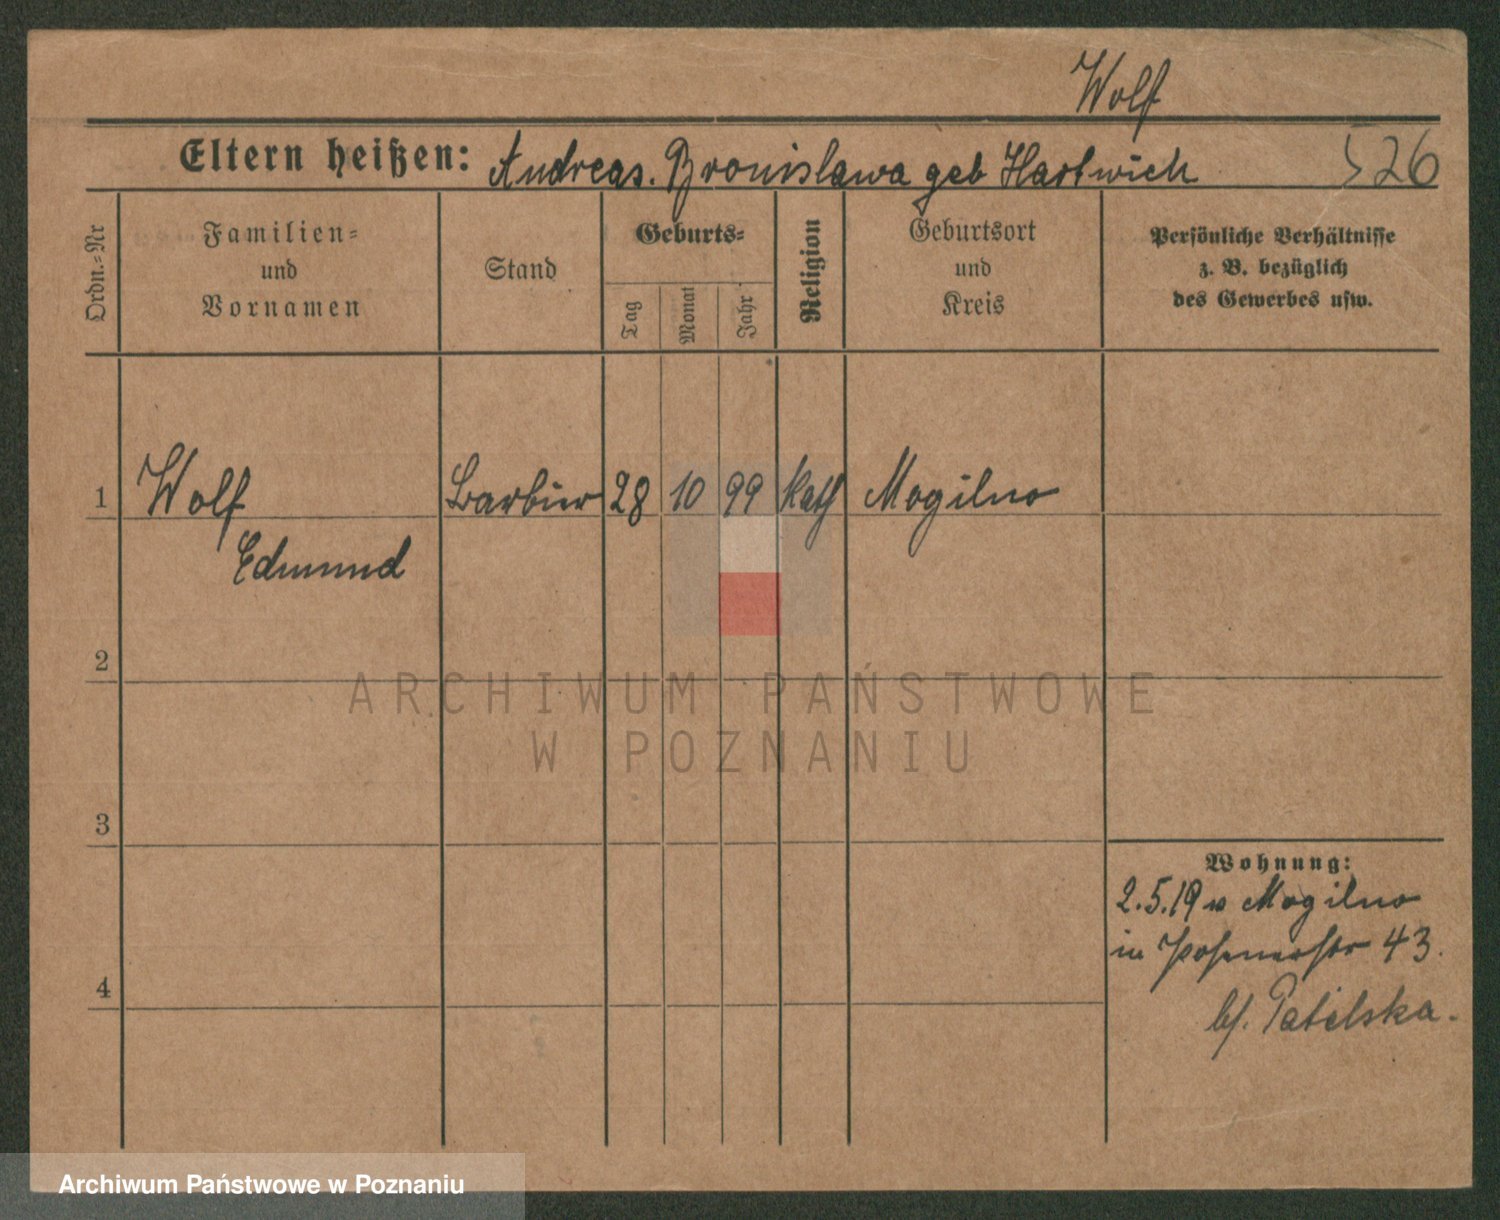 Wolf
Eltern heißen: Andreas. Bronislawa geb Hartwich 526
Ordn.-Nr
Familien-
und
Vornamen
Stand
Geburts-
Tag
Monat
Jahr
Religion
Geburtsort
und
Kreis
Persönliche Verhältnisse
z. B. bezüglich
des Gewerbes usw.
1 Wolf Barbier 28 10 99 Kath Mogilno
Edmund
2
ARCHIWUM PAŃSTWOWE
W POZNANIU
3
Wohnung:
2.5.19 v Mogilno
in Posenerstr 43.
4
bf. Patelska.
Archiwum Państwowe w Poznaniu